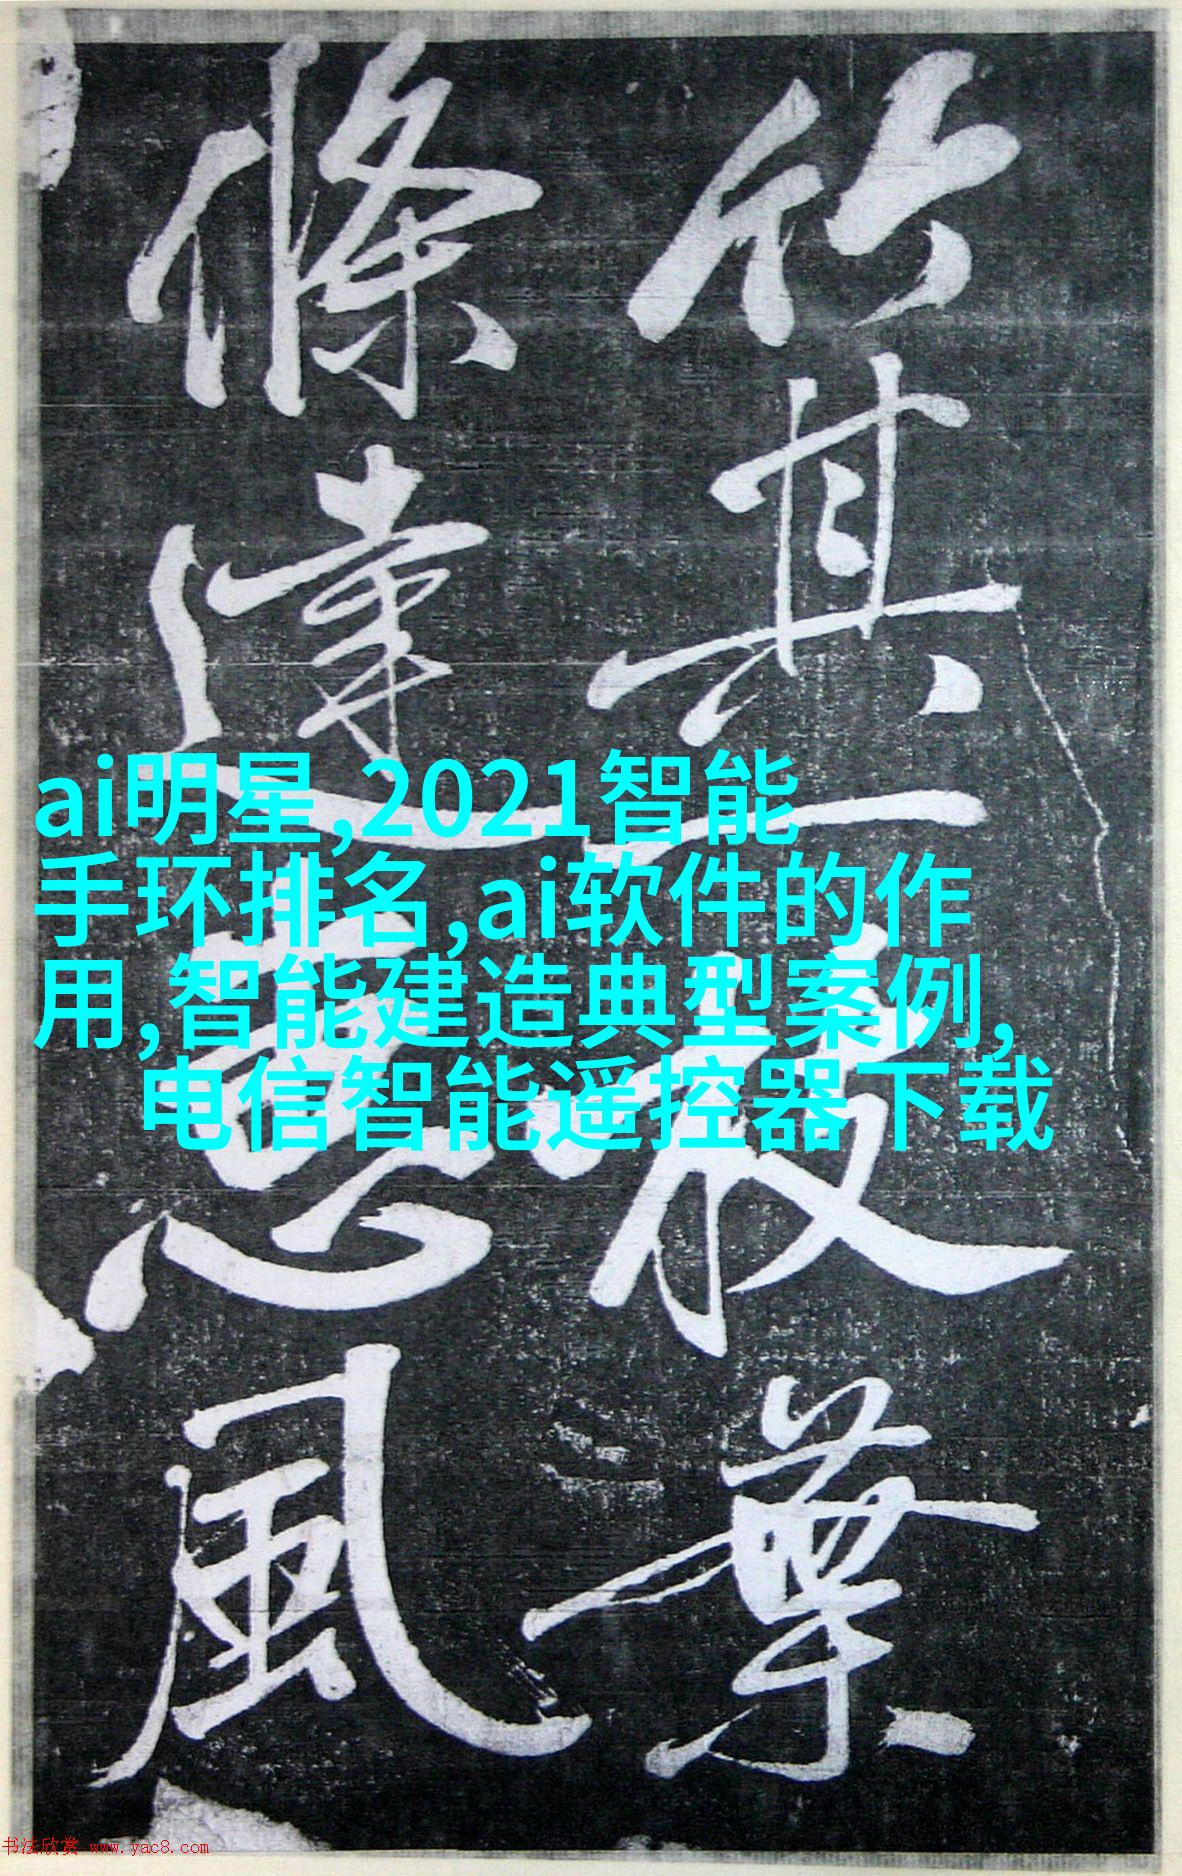 竹其一枝葉
條達惠風
ai明星,2021智能
手环排名,ai软件的作
用,智能建造典型案例,
电信智能遥控器下载
书法欣赏 www.yac8.com